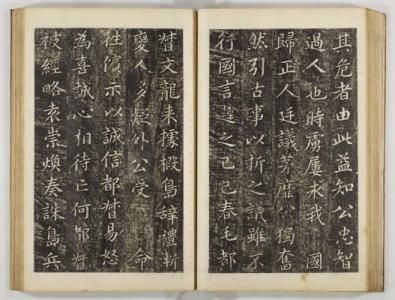 其危者由此益知公忠智
過人也時虜屢求我 國
歸正人廷議茅靡公獨奮
然引古事以折之議雖不
行國言韙之己巳春毛都
督文龍来據椵島辞禮漸
變人多疑外公受 命
往復示以誠信都督易怒
為喜誠心相待亡何都督
被經略袁崇煥奏誅島兵